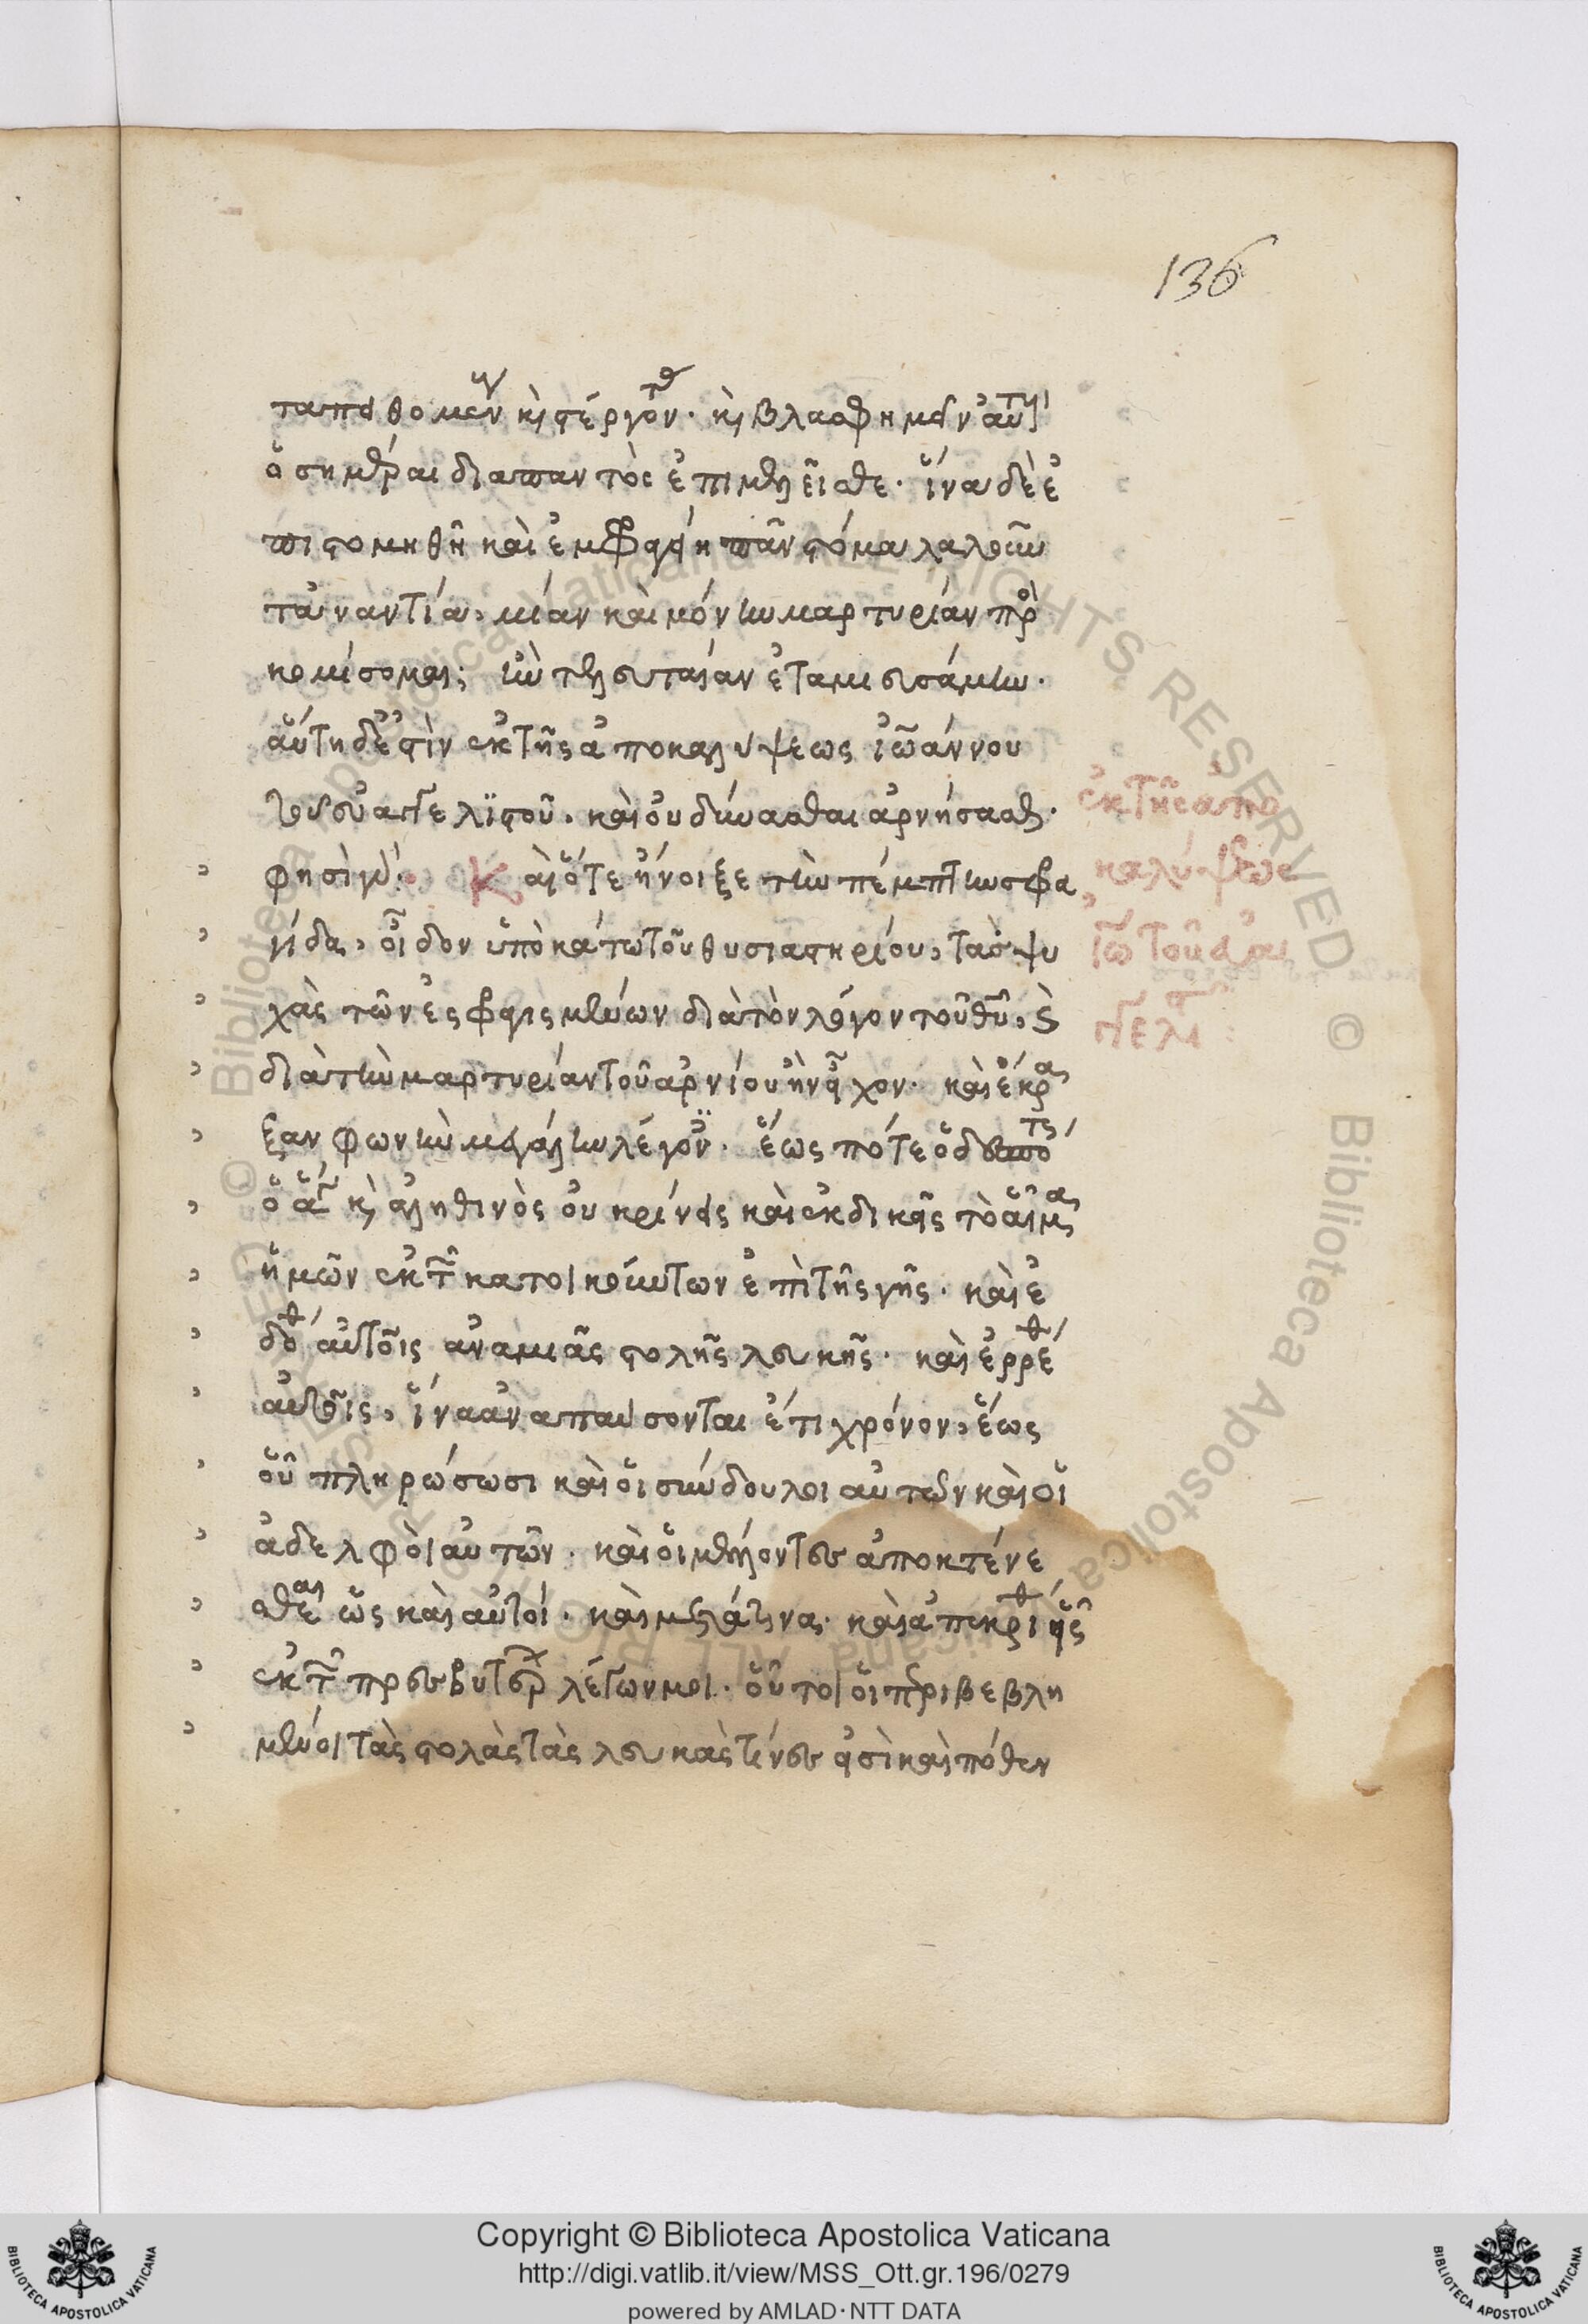 136
ταπειθομένην καὶ στέργουσαν· καὶ βλασφημεῖν αὐτὴν
ὁσημέραι διαπαντὸς ἐπιμελεῖσθε· ἵνα δὲ ἐ
πιστομηθῆ καὶ ἐμφραγείη πᾶν στόμα λαλοῦν
τἀναντία, μίαν καὶ μόνην μαρτυρίαν προ
κομίσομαι; ἣν τελευταίαν ἐταμιευσάμην·
αὕτη δέ ἐστὶν ἐκ τῆς ἀποκαλύψεως ἰωάννου
τοῦ εὐαγγελϊστοῦ, καὶ οὐ δύνασθαι ἀρνήσασθαι·
φησὶ γάρ· Καὶ ὅτε ἤνοιξε τὴν πέμπτην σφρα
γίδα, εἶδον ὑποκάτω τοῦ θυσιαστηρίου, τὰς ψυ
χὰς τῶν ἐσφραγισμένων διὰ τὸν λόγον τοῦ θυ, καὶ
διὰ τὴν μαρτυρίαν τοῦ ἀρνίου ἣν εἶχον· καὶ ἔκρα
ξαν φωνὴν μεγάλην λέγοντες· ἕως πότε ὁ δεσπότης
ὁ ἅγιος καὶ ἀληθινὸς οὐ κρίνεις καὶ ἐκδικεῖς τὸ αἷμα
ἡμῶν ἐκ τῶν κατοικούντων ἐπὶ τῆς γῆς· καὶ ἐ
δόθη αὐτοῖς ἀνα μιᾶς στολῆς λευκῆς· καὶ ἐρρέθη
αὐτοῖς, ἵνα ἀναπαύσονται ἔτι χρόνον, ἕως
οὗ πληρώσωσι καὶ οἱ σύνδουλοι αὐτῶν καὶ οἱ
ἀδελφοὶ αὐτῶν· καὶ οἱ μέλλοντες ἀποκτένε
σθαι ὡς καὶ αὐτοί· καὶ μετάτινα· καὶ ἀπεκρίθη εἷς
ἐκ τῶν πρεσβυτέρων λέγων μοι· οὗτοι οἱ περιβεβλη
μένοι τὰς στολὰς τὰς λευκὰς τίνες εἰσὶ καὶ πόθεν
ἐκ τῆς ἀπο
καλύψεως
ἰω τοῦ εὐαγ
γελιστοῦ
Copyright © Biblioteca Apostolica Vaticana
http://digi.vatlib.it/view/MSS_Ott.gr.196/0279
powered by AMLAD·NTT DATA